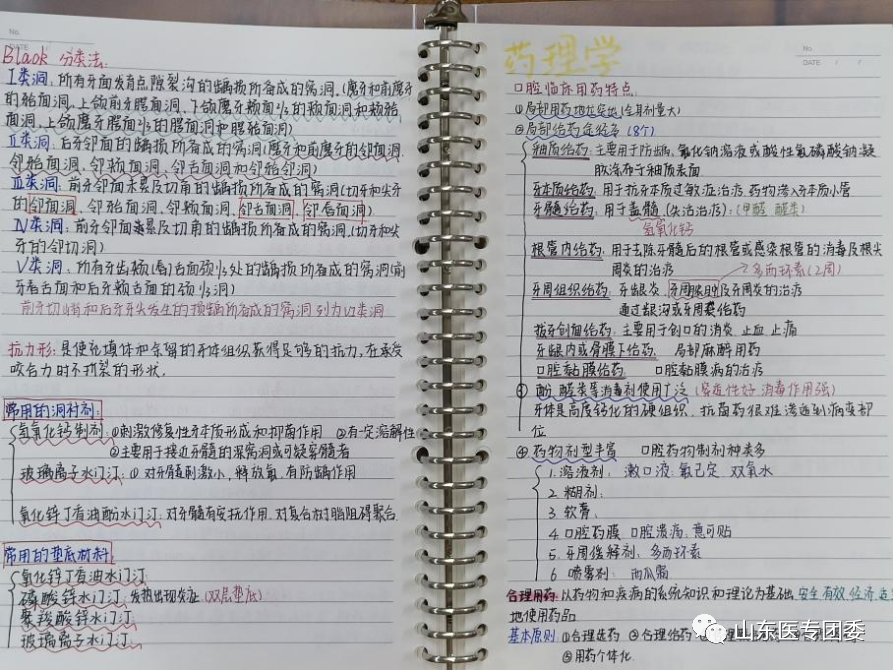 No.
DATE
Black 分类法
I类洞：所有牙面发育点隙裂沟的龋损所备成的窝洞，(磨牙和前磨牙
的𬌗面洞、上颌前牙腭面洞、下颌磨牙颊面2/3的颊面洞和颊𬌗
面洞、上颌磨牙腭面2/3的腭面洞和腭𬌗面洞)
II类洞：后牙邻面的龋损所备成的窝洞(磨牙和前磨牙的邻面洞、
邻𬌗面洞、邻颊面洞、邻舌面洞和邻𬌗邻洞)
III类洞：前牙邻面未累及切角的龋损所备成的窝洞(切牙和尖牙
的邻面洞、邻𬌗面洞、邻颊面洞、邻舌面洞、邻唇面洞)
IV类洞：前牙邻面累及切角的龋损所备成的窝洞，(切牙和尖
牙的邻切洞)
V类洞：所有牙齿颊(唇)舌面颈1/3处的龋损所备成的窝洞(前
牙唇舌面和后牙颊舌面的颈1/3洞)
前牙切嵴和后牙牙尖发生的龋损所备成的窝洞列为VI类洞
抗力形：是使充填体和余留的牙体组织获得足够的抗力，在承受
咬合力时不折裂的形状.
常用的洞衬剂：
氢氧化钙制剂：①刺激修复性牙本质形成和抑菌作用 ②有一定溶解性
③主要用于接近牙髓的深窝洞或可疑穿髓者
玻璃离子水门汀：①对牙髓刺激小，释放氟，有防龋作用
氧化锌丁香油酚水门汀：对牙髓有安抚作用，对复合树脂阻碍聚合
常用的垫底材料
氧化锌丁香油水门汀
磷酸锌水门汀：发热出现炎症 (双层垫底)
聚羧酸锌水门汀
玻璃离子水门汀
药理学
No.
DATE / /
口腔临床用药特点
①局部用药地位突出(全身剂量大)
②局部给药途径多 (8个)
釉质给药：主要用于防龋，氟化钠溶液或酸性氟磷酸钠凝
胶涂布于釉质表面
牙本质给药：用于抗牙本质过敏症治疗，药物渗入牙本质小管
牙髓给药：用于盖髓(失活治疗)：(甲醛 醛类)
氢氧化钙
根管内给药：用于去除牙髓后的根管或感染根管的消毒及根尖
周炎的治疗
多西环素(2周)
牙周组织给药：牙龈炎、牙周脓肿及牙周炎的治疗
通过龈沟或牙周袋给药
拔牙创面给药：主要用于创口的消炎 止血 止痛
牙龈内或骨膜下给药：局部麻醉用药
口腔黏膜给药：口腔黏膜病的治疗
③酚、醛类等消毒剂使用广泛 (穿透性好 消毒作用强)
牙体是高度钙化的硬组织，抗菌药很难渗透到病变部
位
④药物剂型丰富 口腔药物制剂种类多
1.溶液剂： 漱口液 氯己定 双氧水
2.糊剂：
3.软膏：
4.口腔药膜 口腔溃疡，意可贴
5.牙周缓释剂：多西环素
6.喷雾剂：西瓜霜
合理用药：以药物和疾病的系统知识和理论为基础，安全 有效 经济 适
地使用药品
基本原则 ①合理选药 ②合理给药
⑤用药个体化
山东医专团委